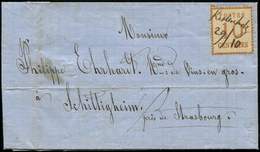 Monsieur
Philippe Ehrhart, Md de Vins en gros
à
Schiltigheim
près de Strasbourg
10